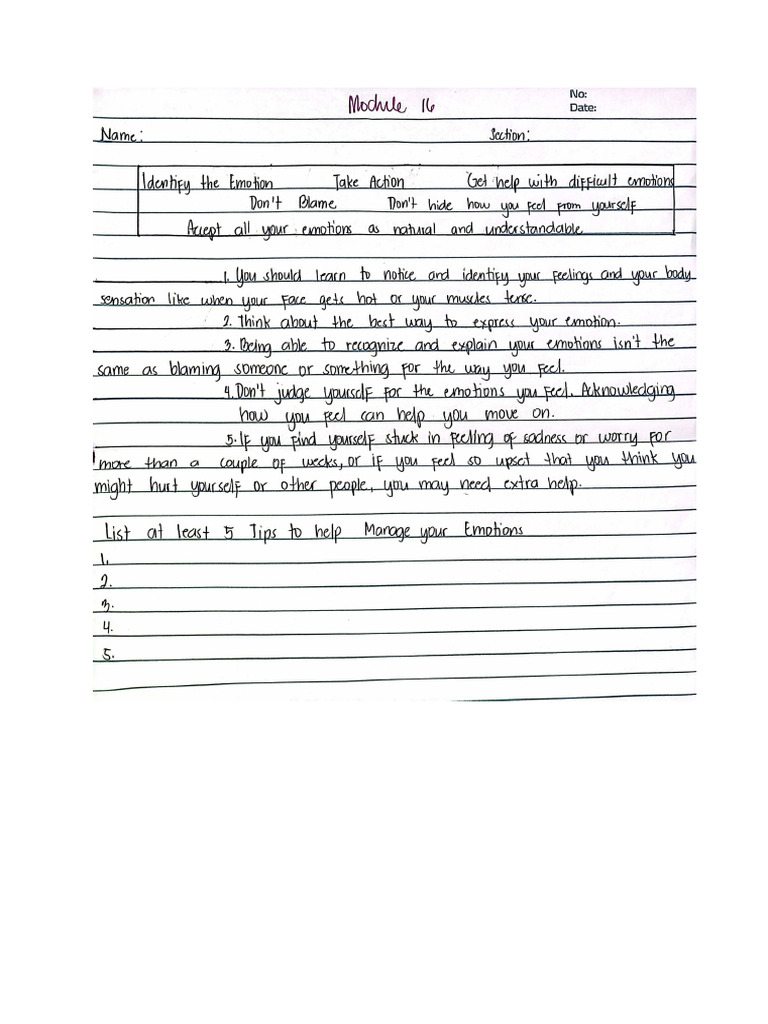 Module 16
No:
Date:
Name: Section:
Identify the Emotion Take Action Get help with difficult emotions
Don't Blame Don't hide how you feel from yourself
Accept all your emotions as natural and understandable
1. You should learn to notice and identify your feelings and your body
sensation like when your face gets hot or your muscles tense.
2. Think about the best way to express your emotion.
3. Being able to recognize and explain your emotions isn't the
same as blaming someone or something for the way you feel.
4. Don't judge yourself for the emotions you feel. Acknowledging
how you feel can help you move on.
5. If you find yourself stuck in feeling of sadness or worry for
more than a couple of weeks, or if you feel so upset that you think you
might hurt yourself or other people, you may need extra help.
List at least 5 Tips to help Manage your Emotions
1.
2.
3.
4.
5.